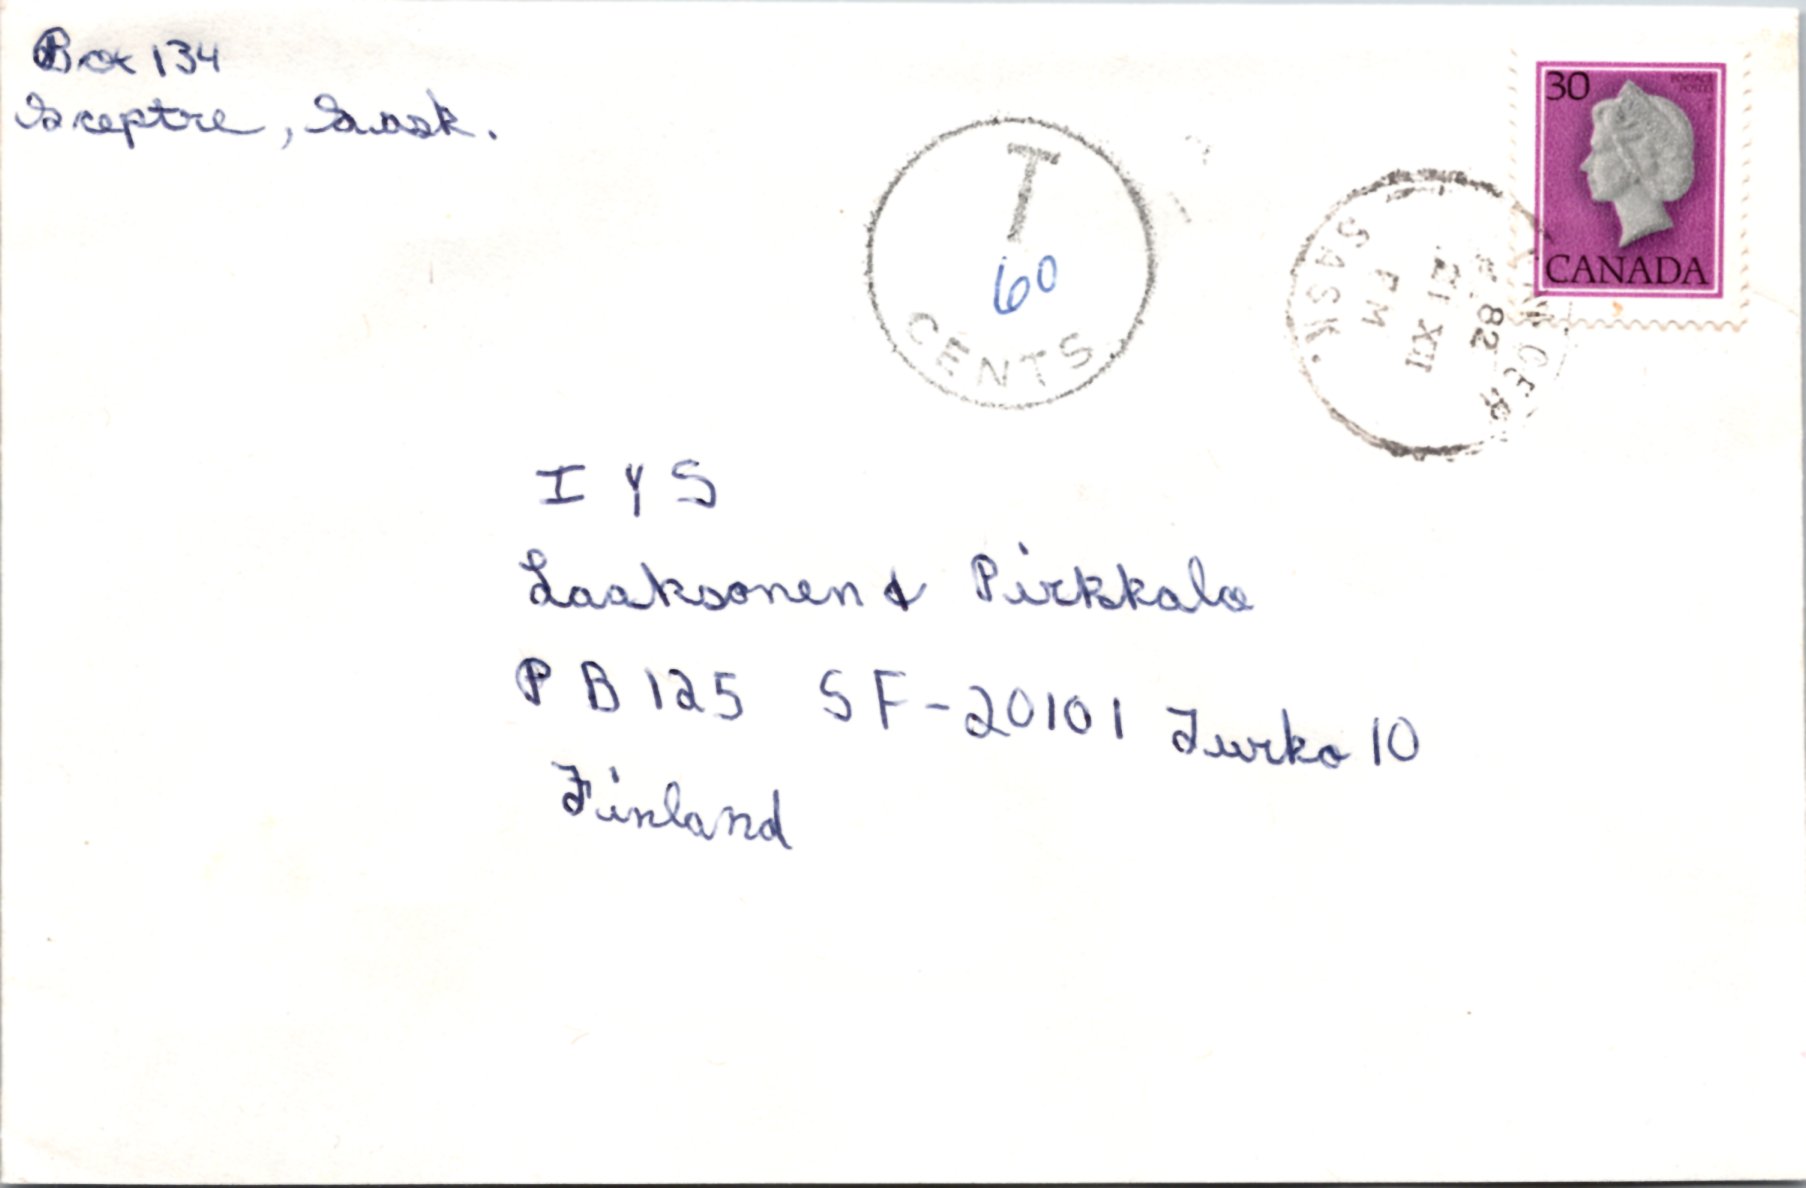 Box 134
Sceptre, Sask.
T
60
CENTS
30
POSTAGE
POSTES
CANADA
SASK.
PM
21 XII
82
I Y S
Laaksonen & Pirkkala
P B 125 SF-20101 Turko 10
Finland